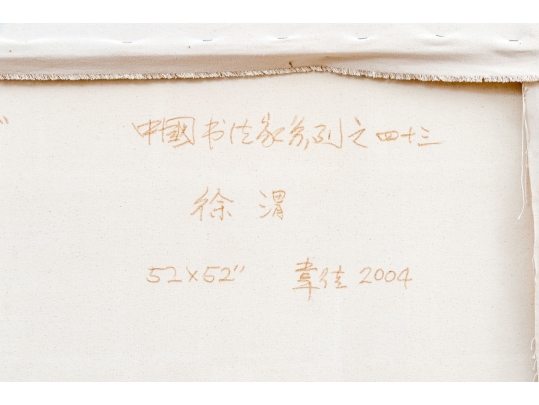 中國书法家系列之四十三
徐渭
52×52"
韋佳 2004